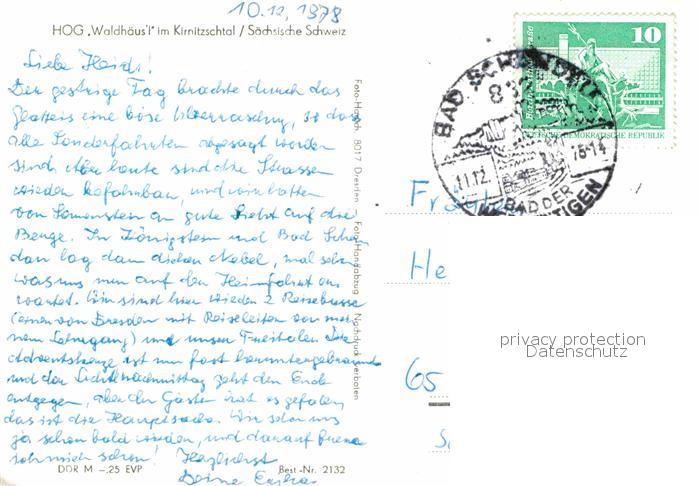 10.12.1978
HOG „Waldhäus'l" im Kirnitzschtal / Sächsische Schweiz
Liebe Heidi!
Der gestrige Tag brachte durch das
Glatteis eine böse Überraschung, so dass
alle Sonderfahrten abgesagt worden
sind. Aber heute sind die Strassen
wieder befahrbar, und wir hatten
von Sonnenstein an gute Sicht auf die
Berge. In Königstein und Bad Schan-
dau lag dann dicker Nebel, mal sehn
was uns nun auf der Heimfahrt er-
wartet. Wir sind hier wieder 2 Reisebusse
(einer von Dresden mit Reiseleiter von mei-
nem Lehrgang) und unser Freitaler. Die
Adventskerze ist nun fast heruntergebrannt
und der Lichtlnachmittag geht dem Ende
entgegen, aber den Gästen hat es gefallen,
das ist die Hauptsache. Wir sehn uns
ja schon bald wieder, und darauf freue
ich mich schon! Herzlichst
Deine
DDR M –,25 EVP
Best.-Nr. 2132
Foto-Handabzug · Nachdruck verboten
8017 Dresden
10
DEUTSCHE DEMOKRATISCHE REPUBLIK
BAD SCHANDAU
11.12.
BAD DER
WERKTÄTIGEN
He
65
privacy protection
Datenschutz